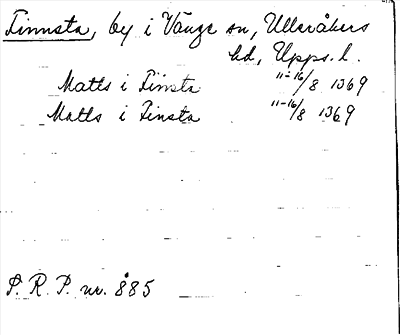 Finnsta, by i Vänge sn, Ulleråkers
hd, Upps. l.
Matts i Finsta 11-16/8 1369
Matts i Finsta 11-16/8 1369
P. R. P. nr. 885